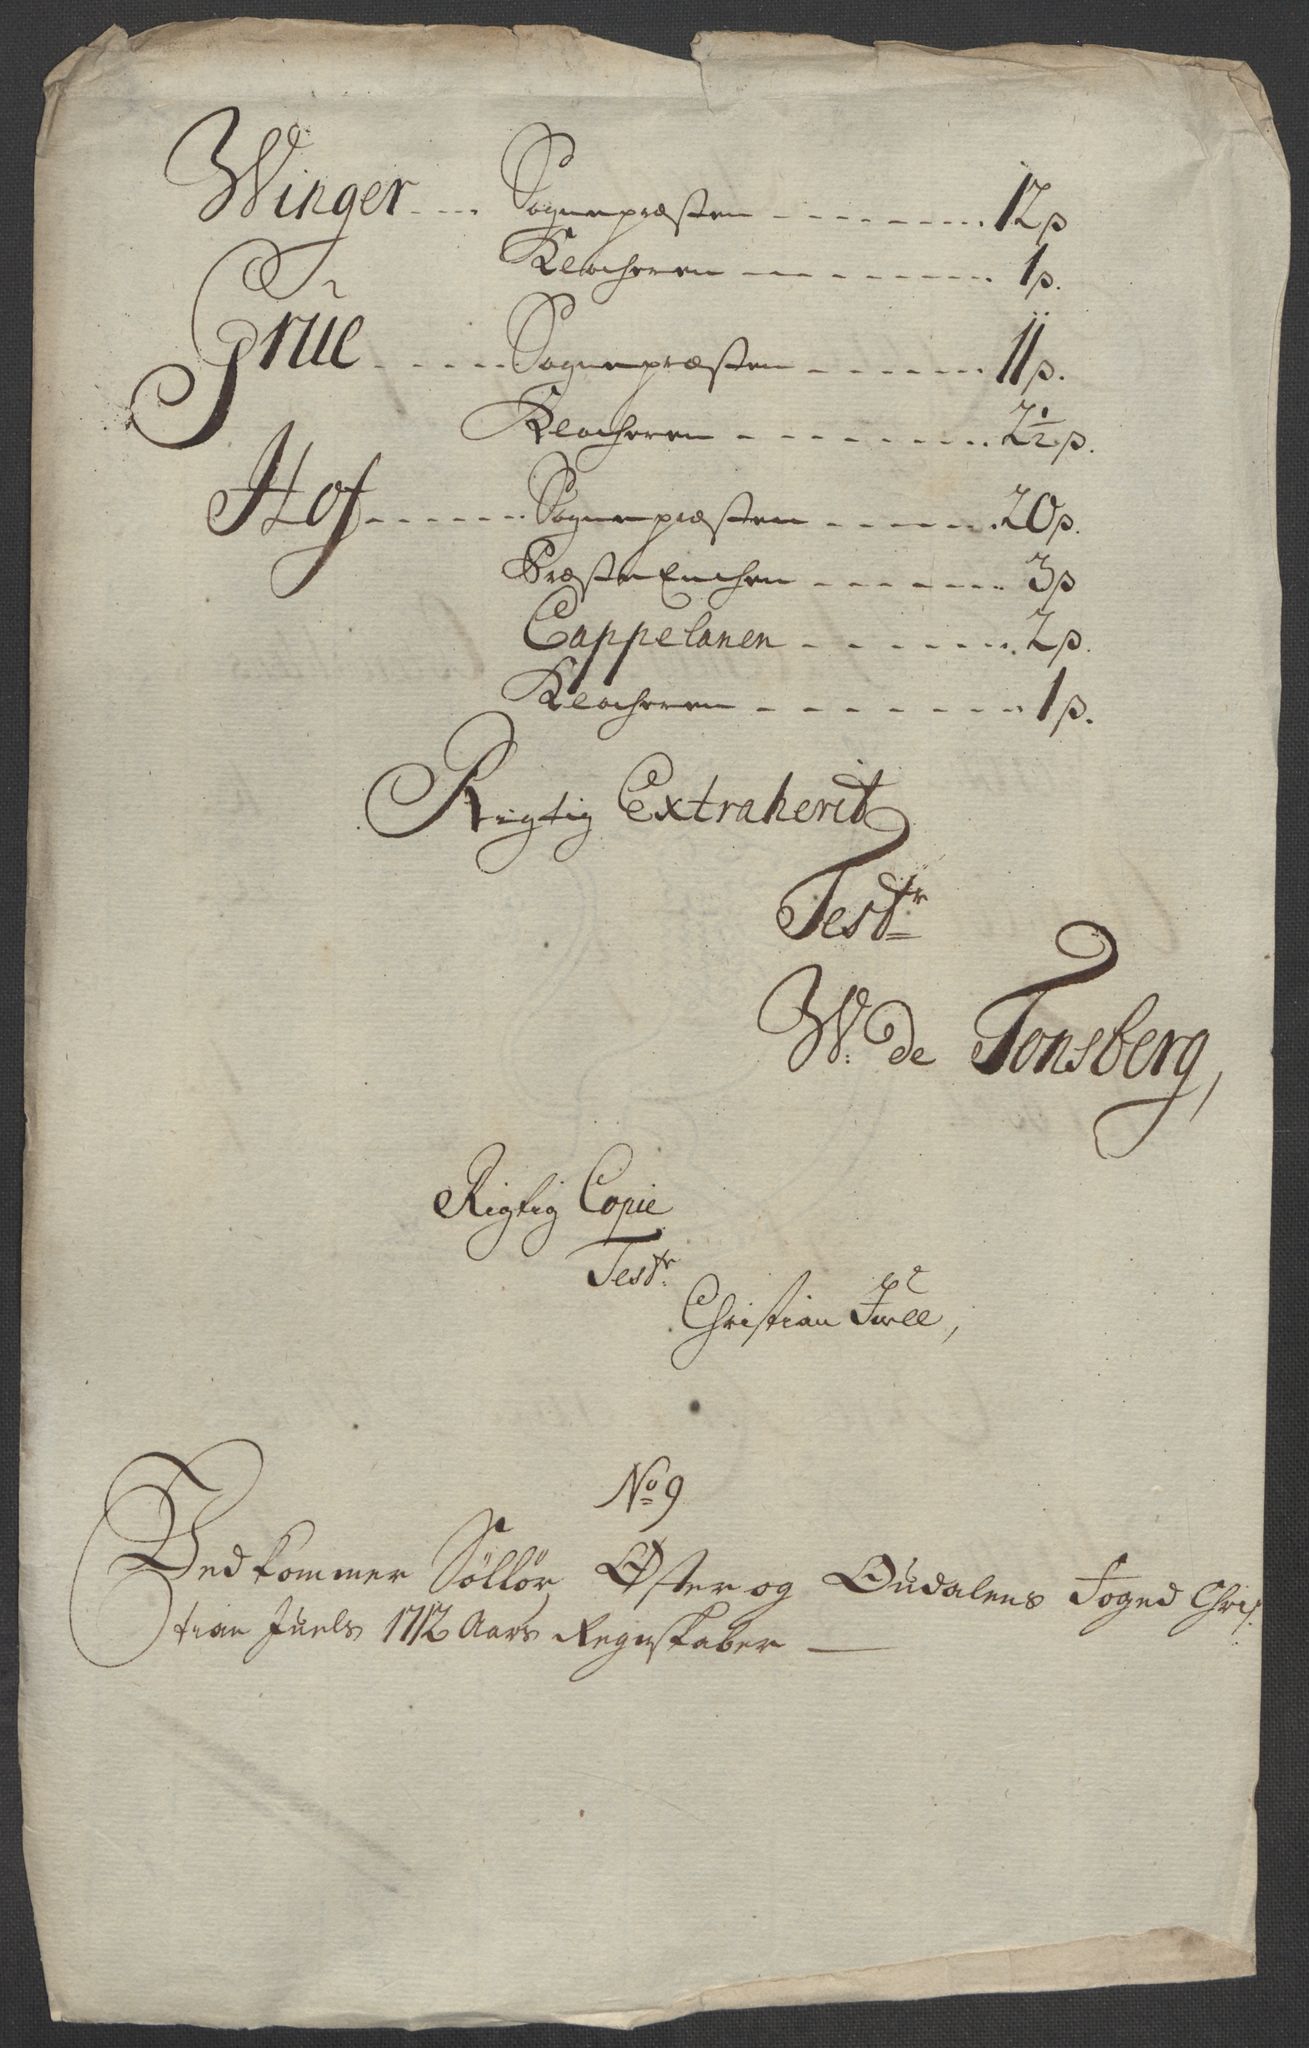 Winger .... Sognepræsten ........ 12 p
Klocheren ........ 1 p.
Grüe ..... Sognepræsten ...... 11 p.
Klocheren ....... 2½ p.
Hof ...... Sognepræsten ...... 20 p.
PræsteEnchen ...... 3 p
Cappelanen ...... 2 p.
Klocheren ....... 1 p.
Rigtig Extraherit
Testr
W: de Tonsberg,
Rigtig Copie
Testr:
Christian Juell,
No 9
Vedkommer Sollør, Øster og Oudalens Foged Chris
tian Juels 1712 Aars Regnskaber —